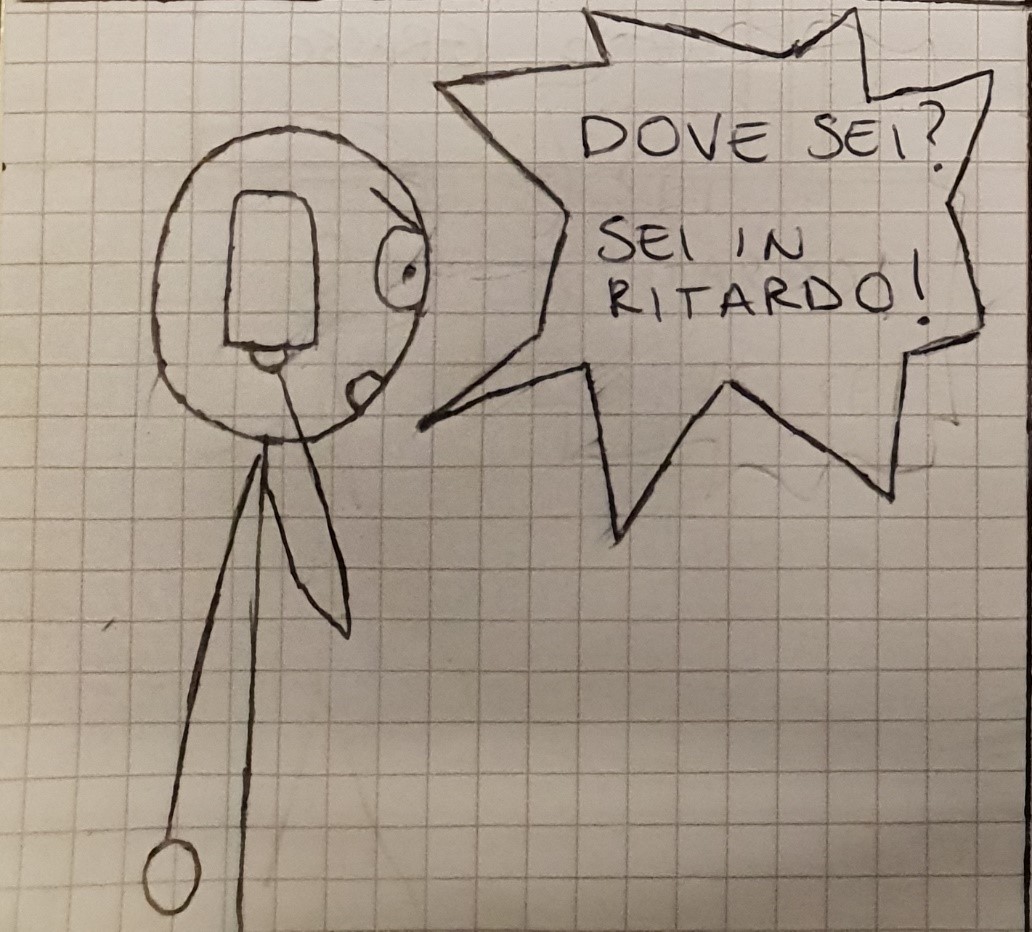 DOVE SEI?
SEI IN
RITARDO!